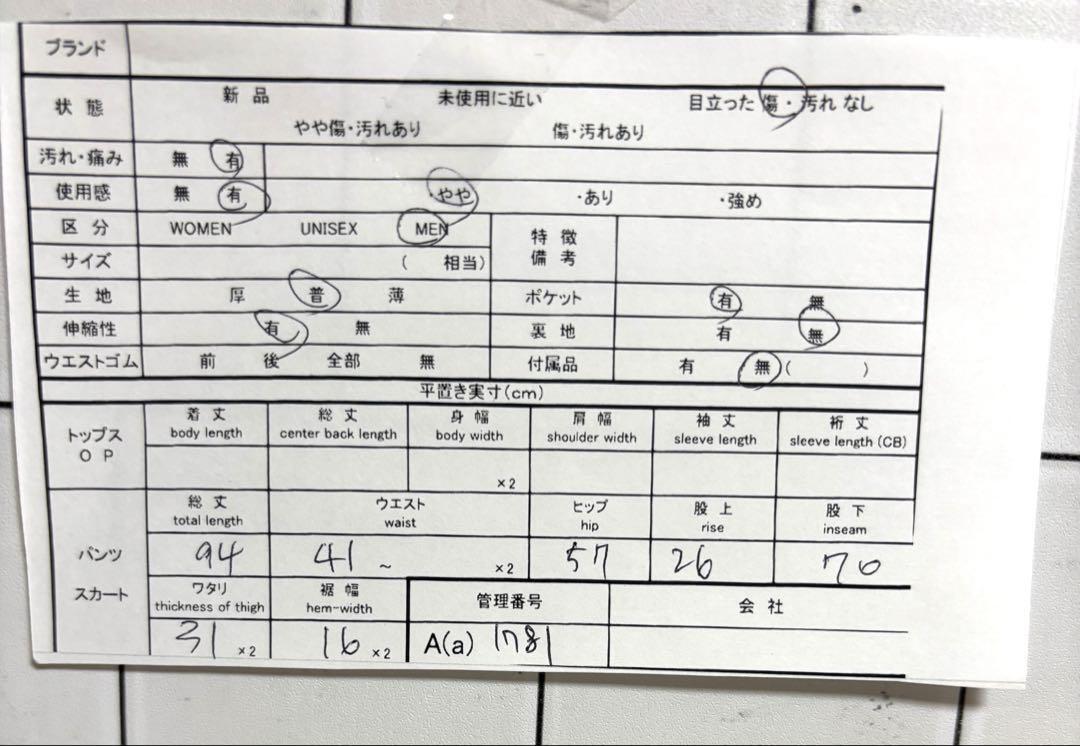 ブランド
状態 新品 未使用に近い 目立った傷・汚れなし
やや傷・汚れあり 傷・汚れあり
汚れ・痛み 無 有
使用感 無 有 ・やや ・あり ・強め
区分 WOMEN UNISEX MEN 特徴
備考
サイズ ( 相当)
生地 厚 普 薄 ポケット 有 無
伸縮性 有 無 裏地 有 無
ウエストゴム 前 後 全部 無 付属品 有 無 ( )
平置き実寸(cm)
トップス
OP
着丈 総丈 身幅 肩幅 袖丈 裄丈
body length center back length body width shoulder width sleeve length sleeve length (CB)
×2
パンツ
スカート
総丈 ウエスト ヒップ 股上 股下
total length waist hip rise inseam
94 41 ~ ×2 57 26 70
ワタリ 裾幅 管理番号 会社
thickness of thigh hem-width
31 ×2 16 ×2 A(a) 1781